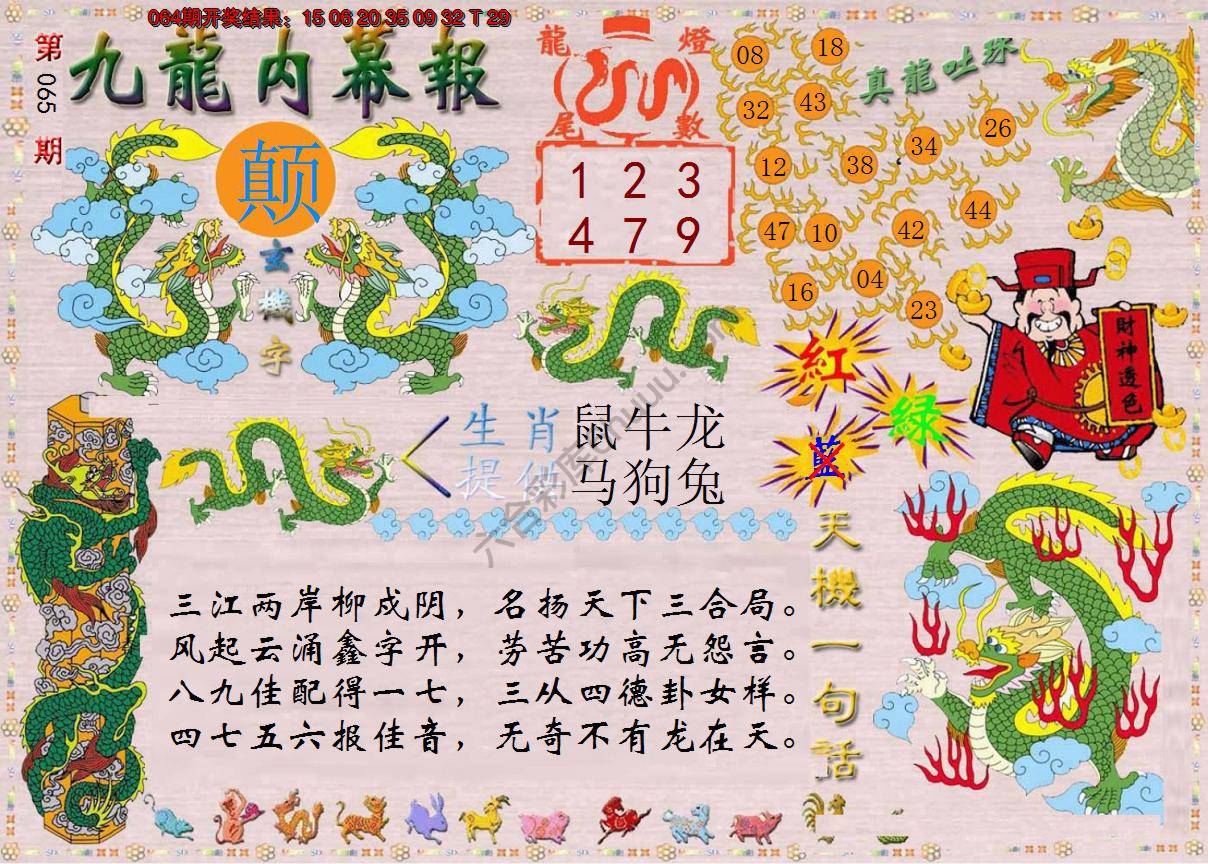 064期开奖结果：15 06 20 35 09 32 T 29
第065期
九龍内幕報
颠
玄機字
龍燈
尾數
1 2 3
4 7 9
真龍吐珠
08 18
32 43
12 38 34 26
47 10 42 44
16 04 23
財神透色
紅
綠
藍
生肖 鼠牛龙
提供 马狗兔
三江两岸柳成阴，名扬天下三合局。
风起云涌鑫字开，劳苦功高无怨言。
八九佳配得一七，三从四德卦女样。
四七五六报佳音，无奇不有龙在天。
天機一句話